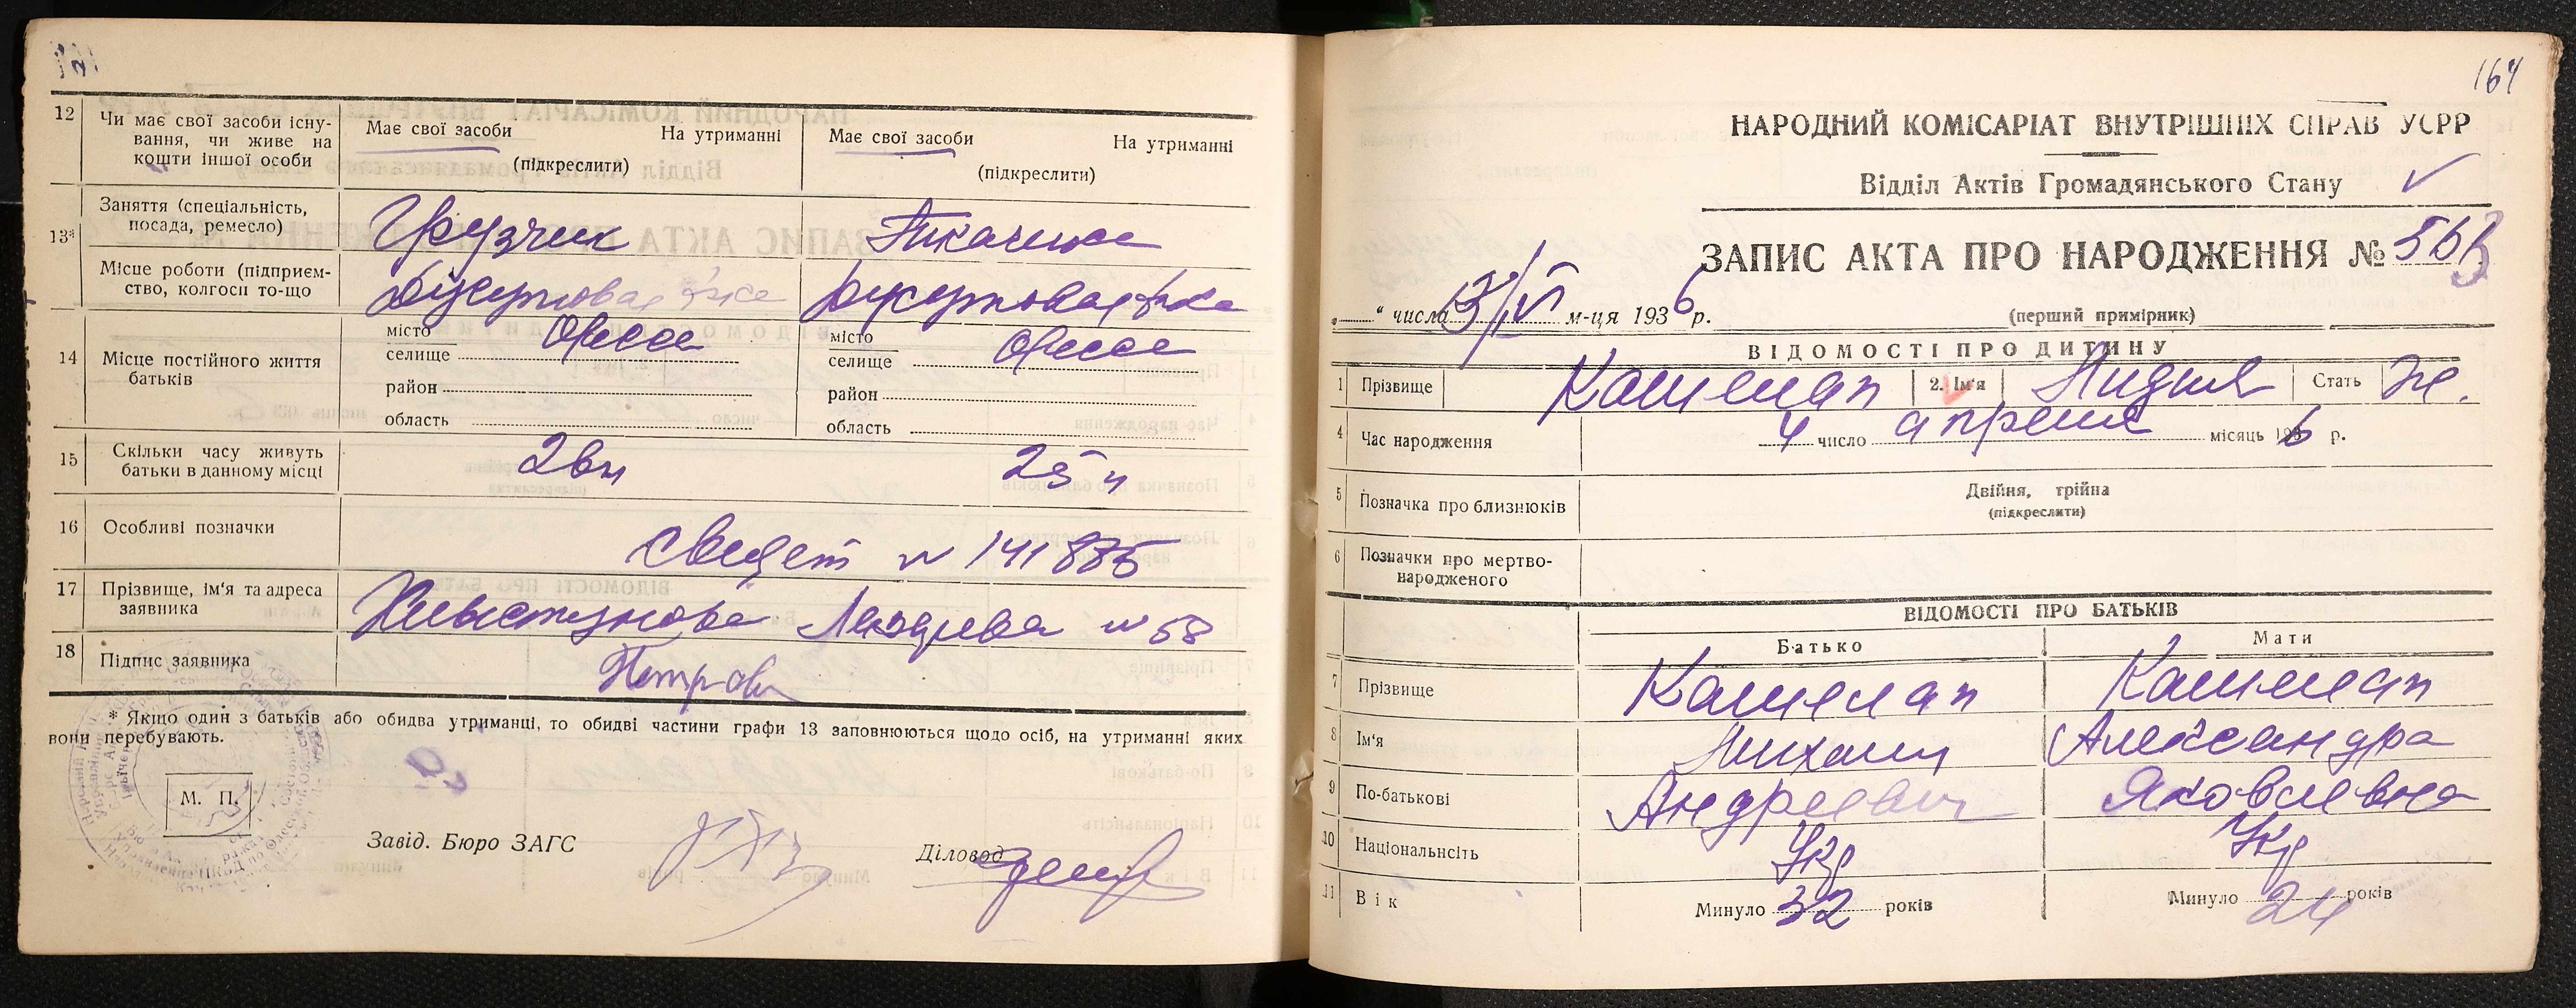 12 Чи має свої засоби існу-
вання, чи живе на
кошти іншої особи
Має свої засоби На утриманні
(підкреслити)
Має свої засоби На утриманні
(підкреслити)
13* Заняття (спеціальність,
посада, ремесло)
Грузчик
Місце роботи (підприєм-
ство, колгосп то-що
Джутовая ф-ка
14 Місце постійного життя
батьків
місто
селище Одесса
район
область
місто
селище Одесса
район
область
15 Скільки часу живуть
батьки в данному місці
16 Особливі позначки
Свидет № 141885
17 Прізвище, ім‘я та адреса
заявника
№ 58
18 Підпис заявника
* Якщо один з батьків або обидва утриманці, то обидві частини графи 13 заповнюються щодо осіб, на утриманні яких
вони перебувають.
М. П.
Завід. Бюро ЗАГС
Діловод
164
НАРОДНИЙ КОМІСАРІАТ ВНУТРІШНІХ СПРАВ УСРР
Відділ Актів Громадянського Стану
ЗАПИС АКТА ПРО НАРОДЖЕННЯ №
„ “ числа м-ця 1936 р.
(перший примірник)
ВІДОМОСТІ ПРО ДИТИНУ
1 Прізвище Кашелап 2. Ім‘я Лидия Стать Ж.
4 Час народження 4 число апреля місяць 1936 р.
5 Позначка про близнюків
Двійня, трійна
(підкреслити)
6 Позначки про мертво-
народженого
ВІДОМОСТІ ПРО БАТЬКІВ
Батько Мати
7 Прізвище Кашелап Кашелап
8 Ім‘я Михаил Александра
9 По-батькові Андреевич Яковлевна
10 Національнсіть Укр Укр
11 Вік Минуло 32 років Минуло 24 років